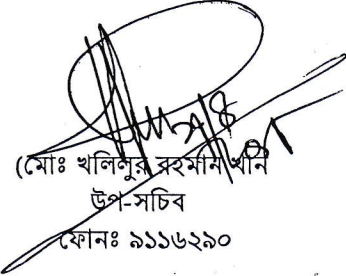 (মোঃ খলিলুর রহমান খান
উপ-সচিব
ফোনঃ ৯১১৬২৯০